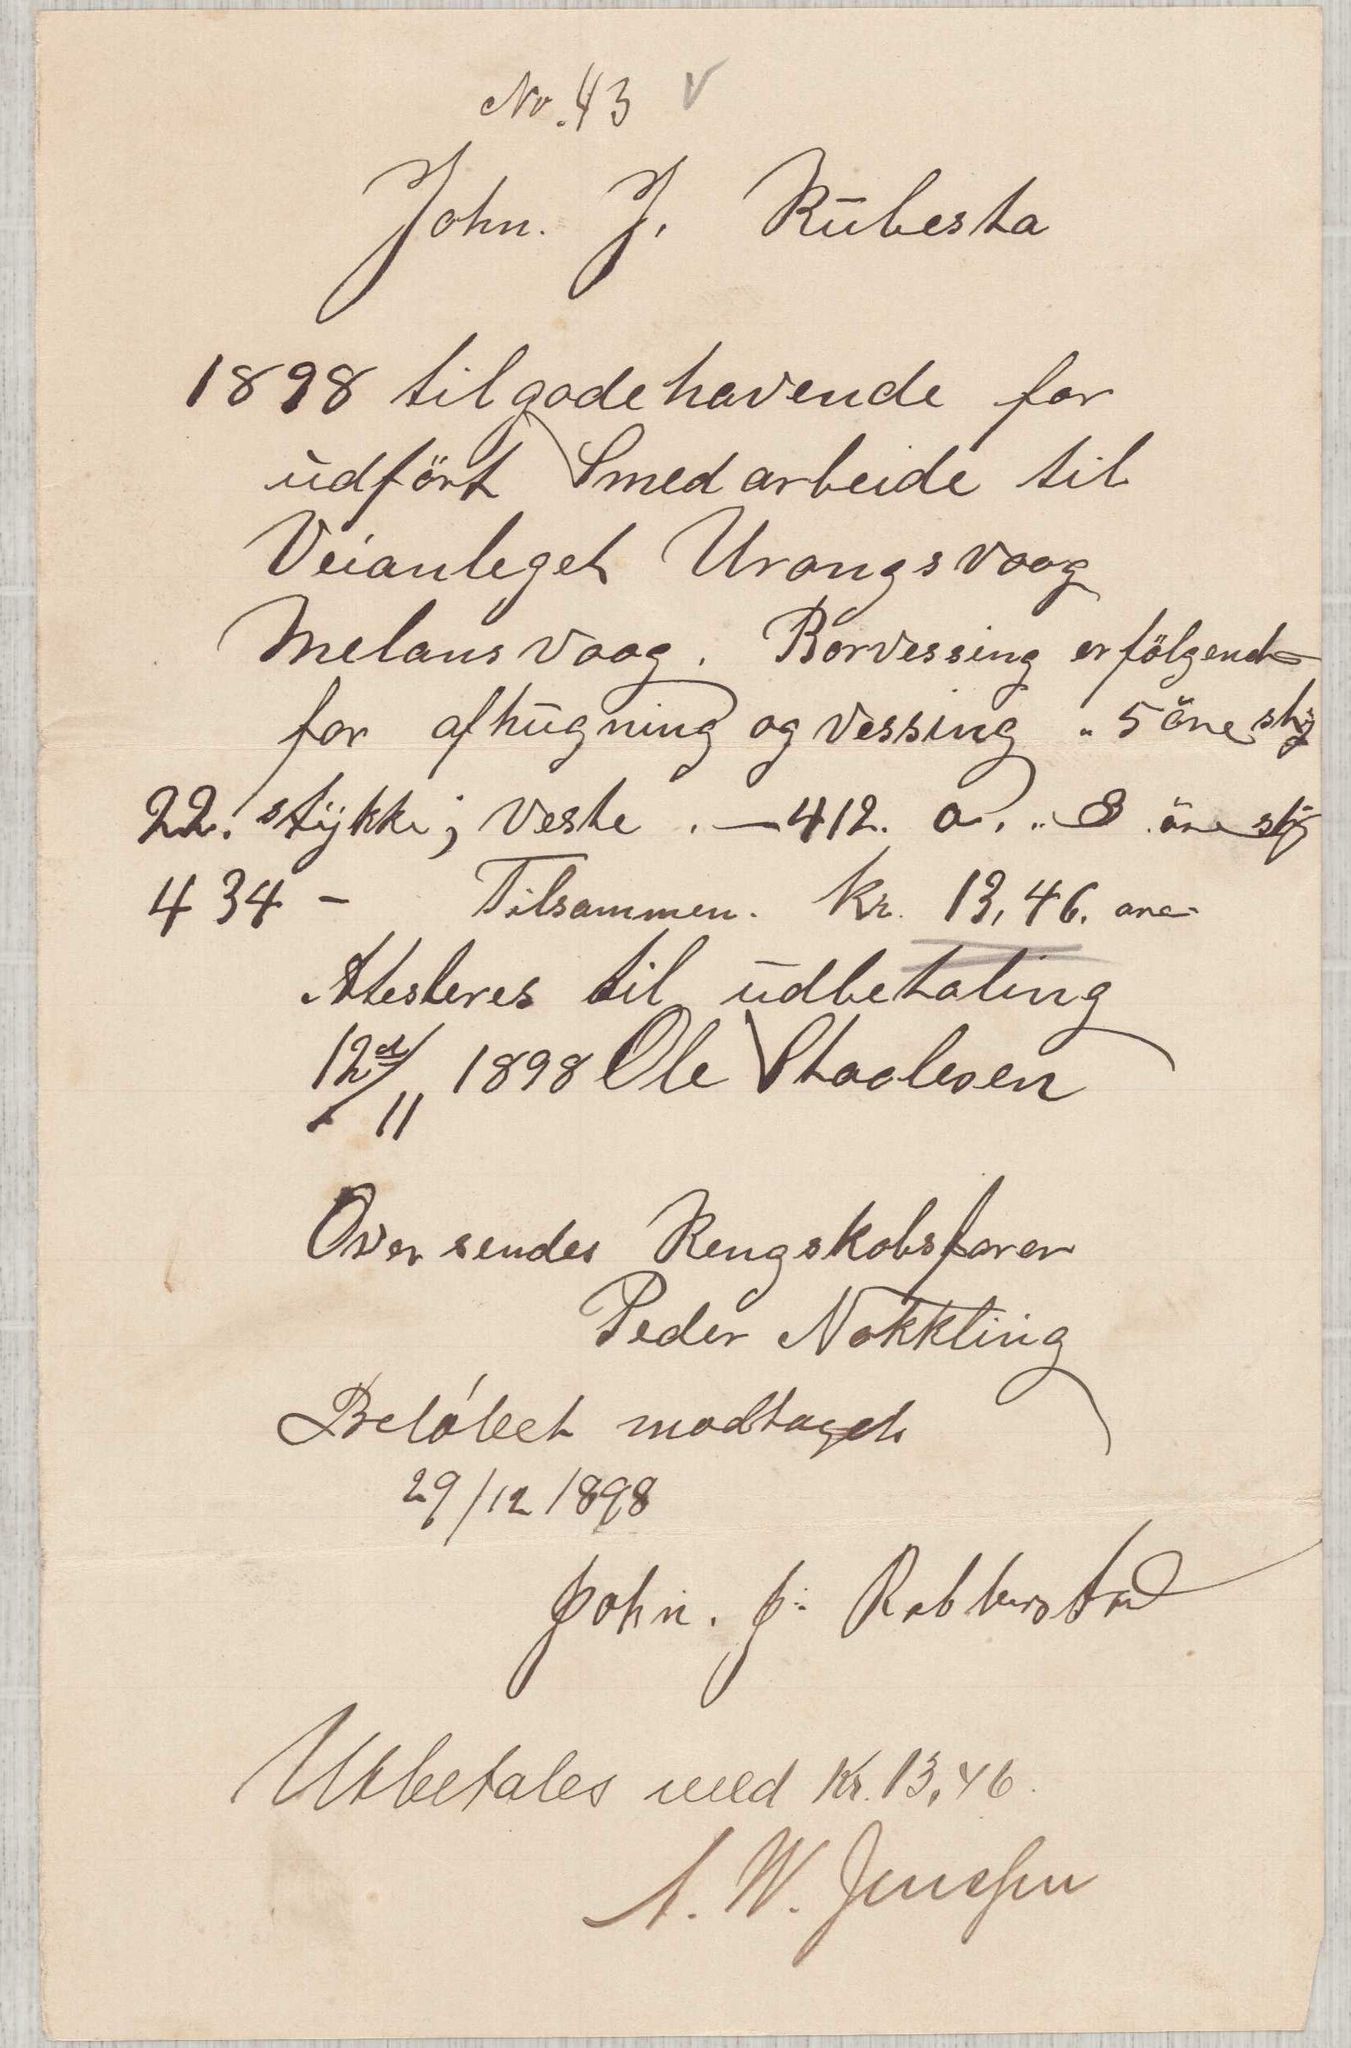 No. 43 V
John. J. Rübesta
1898 tilgodehavende for
üdfört Smedarbeide til
Veianleget Urangsvaag
Melansvaag. Borvessing er fölgende
for afhügning og vessing " 5 öre stÿ
22. stÿkke; veste . — 412. a. " 3 öre stÿ
434 - Tilsammen. Kr. 13,46. øre
Atesteres til üdbetaling
12 11 1898 Ole Staalesen
Over sendes Rengskabsfører
Peder Nøkkling
Belóbet modtaget
29/12 1898
John. J. Rabberstad
Utbetales med Kr. 13,46.
A. W. Jenssen